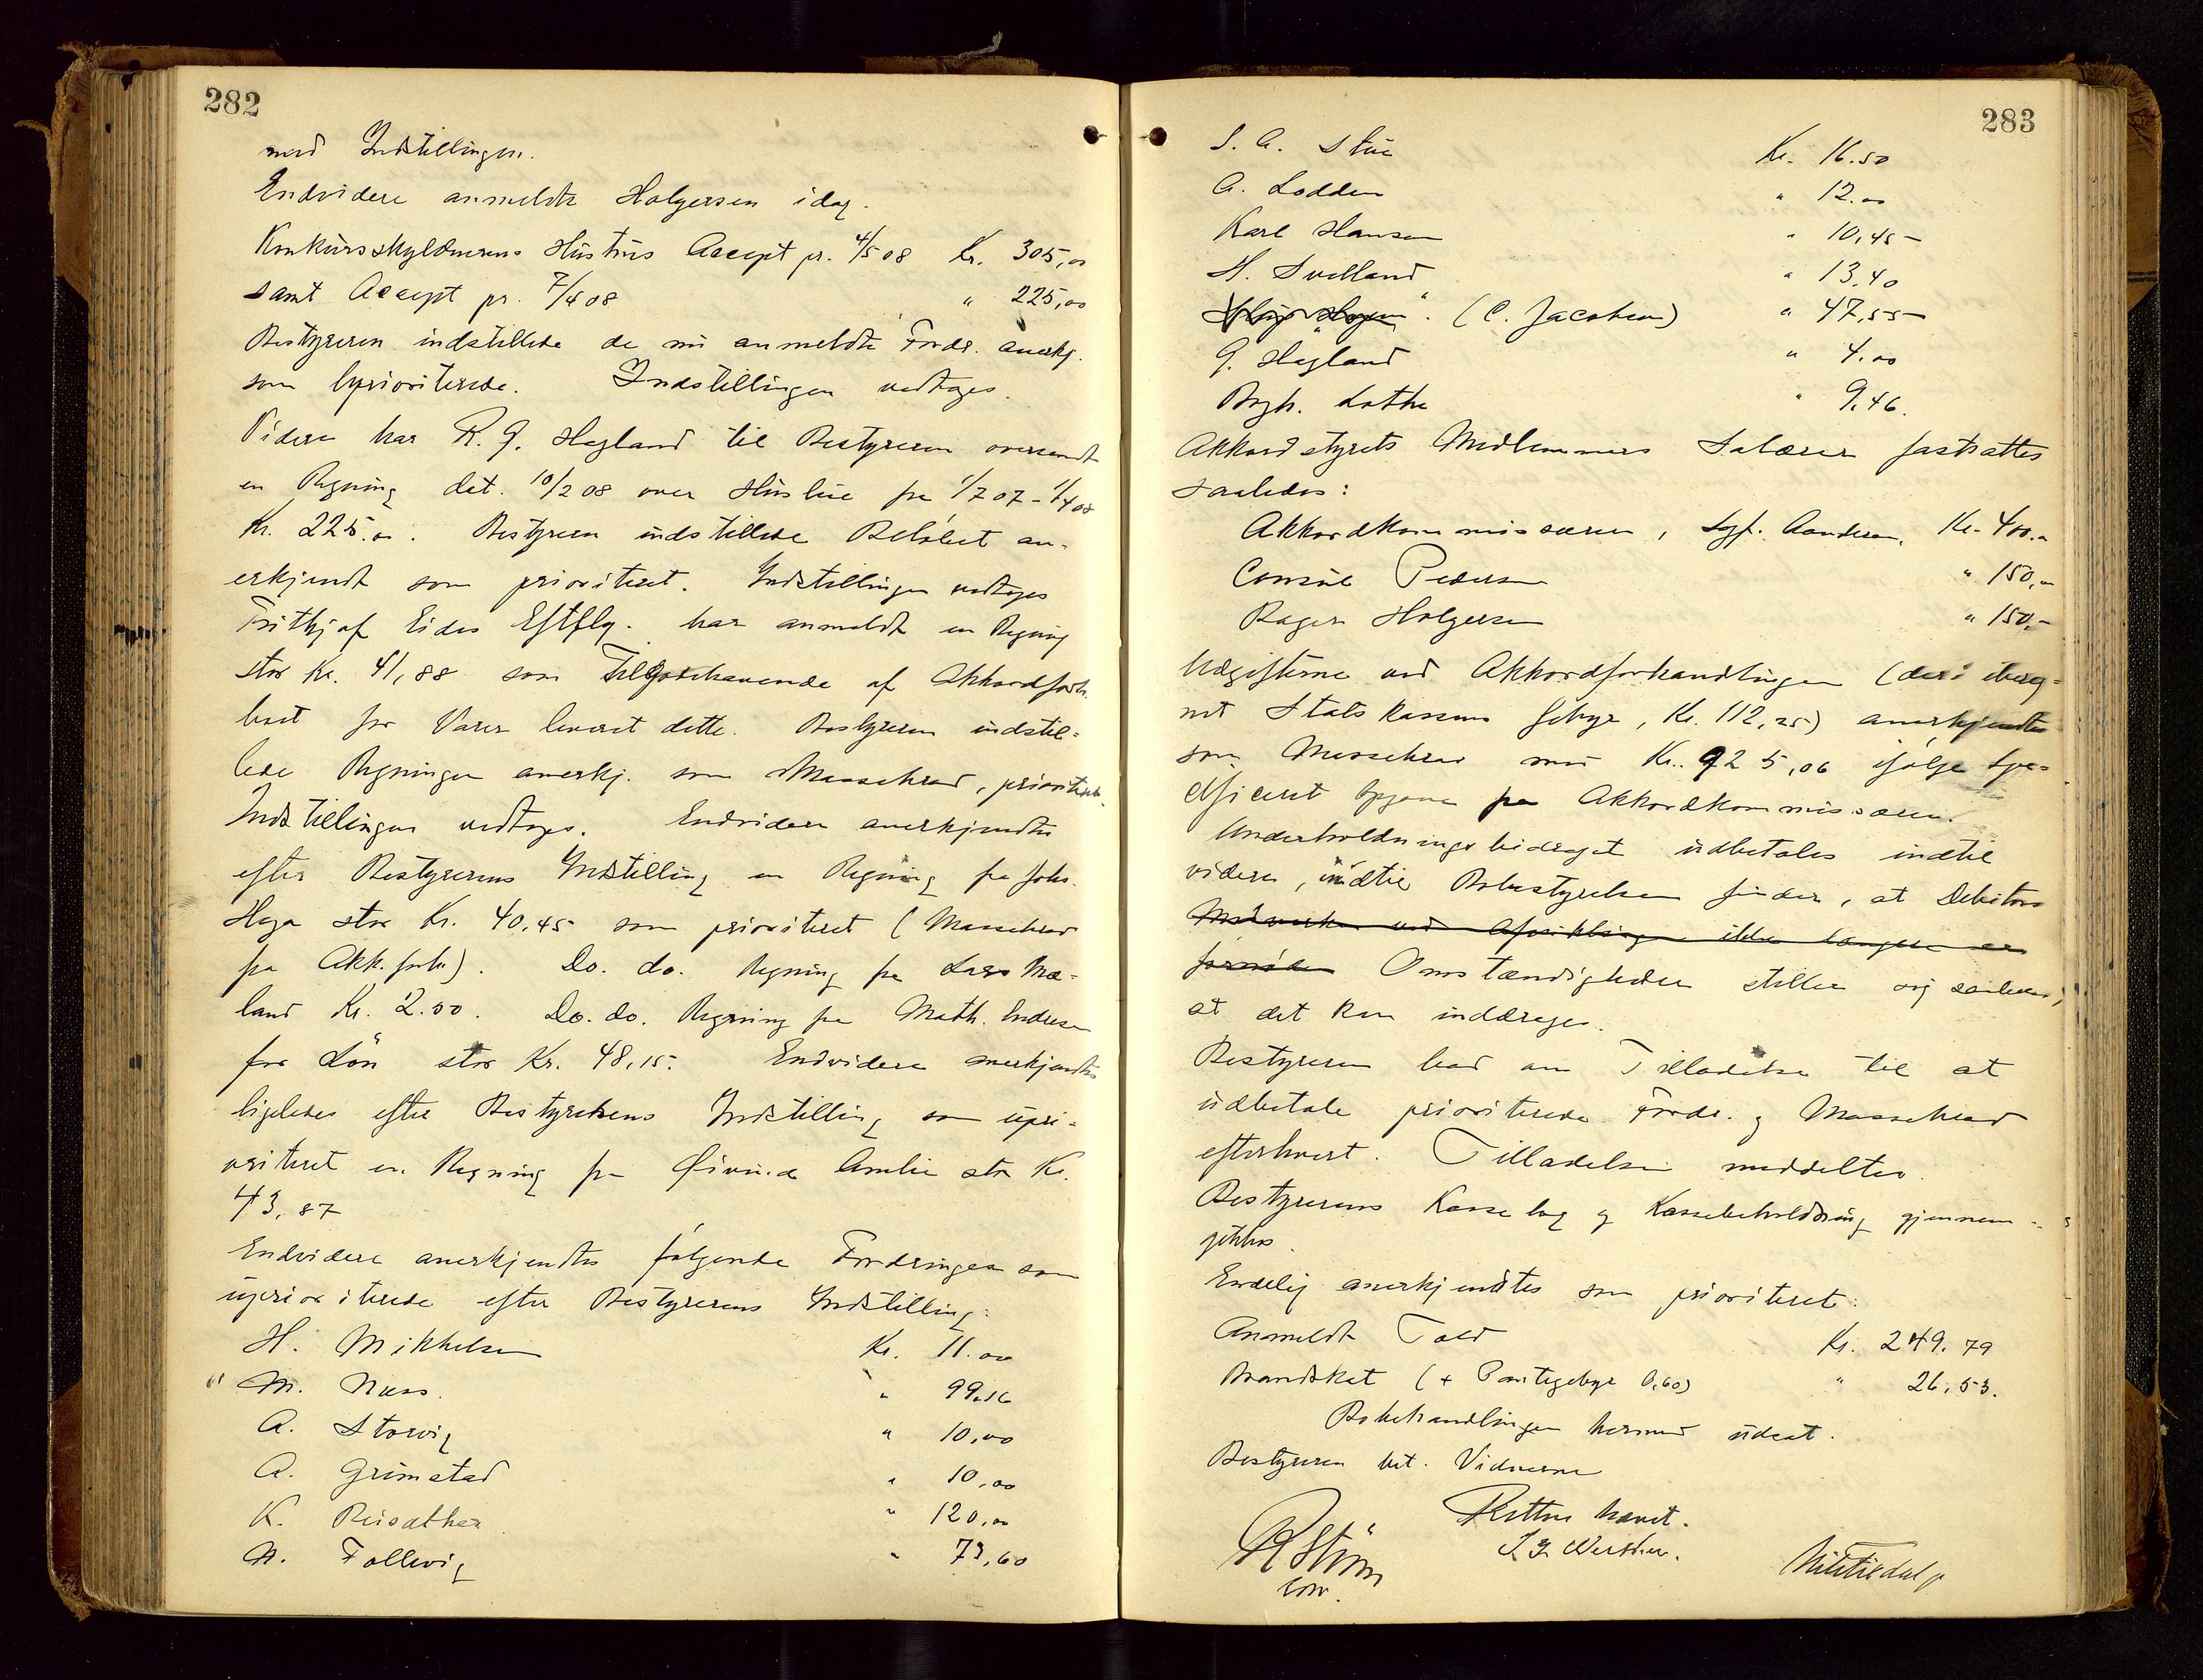 282
med Indstillingen.
Endvidere anmeldte Holgersen idag.
Konkursskyldnerens Hustrus Accept pr. 4/5 08 Kr. 305,00
samt Accept pr. 7/4 08 " 225,00
Bestyreren indstillede de nu anmeldte Fordr. anerkj.
som uprioriterede. Indstillingen vedtages.
Videre har R. G. Hagland til Bestyreren oversendt
en Regning dat. 10/2 08 over Husleie fra 1/7 07 - 1/4 08
Kr. 225.00. Bestyreren indstillede Beløbet an-
erkjendt som prioriteret. Indstillingen vedtages
Frithjof Eides Eftflg. har anmeldt en Regning
stor Kr. 41,88 som Tilgodehavende af Akkordforh.
boet for Varer leveret dette. Bestyreren indstil-
lede Regningen anerkj. som Massekrav, prioriteret.
Indstillingen vedtages. Endvidere anerkjendtes
efter Bestyrerens Indstilling en Regning fra Johs.
Haga stor Kr. 40,45 som prioriteret (Massekrav
fra Akk. forh). Do. do. Regning fra Lars Mæ-
land Kr. 2.00. Do. do. Regning fra Math. Endresen
for Løn stor Kr. 48,15. Endvidere anerkjendtes
ligeledes efter Bestyrelsens Indstilling som upri-
oriteret en Regning fra Øivind Amlie stor Kr.
43,87
Endvidere anerkjendtes følgende Fordringer som
uprioriterede efter Bestyrerens Indstilling:
H. Mikkelsen Kr. 11.00
" M. Næss. " 99.16
A. Storvig " 10,00
A. Grimstad " 10,00
K. Reisæther " 120,00
N. Follevig " 73,60
283
S. A. Stue Kr. 16.50
A. Lodden " 12.00
Karl Hansen " 10,45
H. Svelland " 13,40
(C. Jacobsen) " 47,55
G. Hagland " 4.00
Bagh. Lothe " 9,46.
Akkordstyrets Medlemmers Salærer fastsattes
saaledes:
Akkordkommissæren, Sgf. Aandersen, Kr. 400.-
Consul Pedersen " 150,-
Bager Holgersen " 150,-
Udgifterne ved Akkordforhandlingen (deri ibereg-
net Statskassens Gebyr, Kr. 112,25) anerkjendtes
som Massekrav med Kr. 925,06 ifølge spe-
cificeret Opgave fra Akkordkommissæren.
Underholdningsbidraget udbetales indtil
videre, indtil Bobestyrelsen finder, at Debitors
Medvirken ved Afviklingen ikke længere er
fornøden Omstændigheder stiller sig saaledes,
at det kan inddrages.
Bestyreren bad om Tilladelse til at
udbetale prioriterede Fordr. og Massekrav
efterhvert. Tilladelsen meddeltes.
Bestyrerens Kassebog og Kassebeholdning gjennem-
gikkes.
Endelig anerkjendtes som prioriteret:
Anmeldt Told Kr. 249.79
Brandskat (+ Pantegebyr 0,60) " 26,53.
Bobehandlingen hermed udsat.
Bestyreren bet. Vidnerne
Retten hævet.